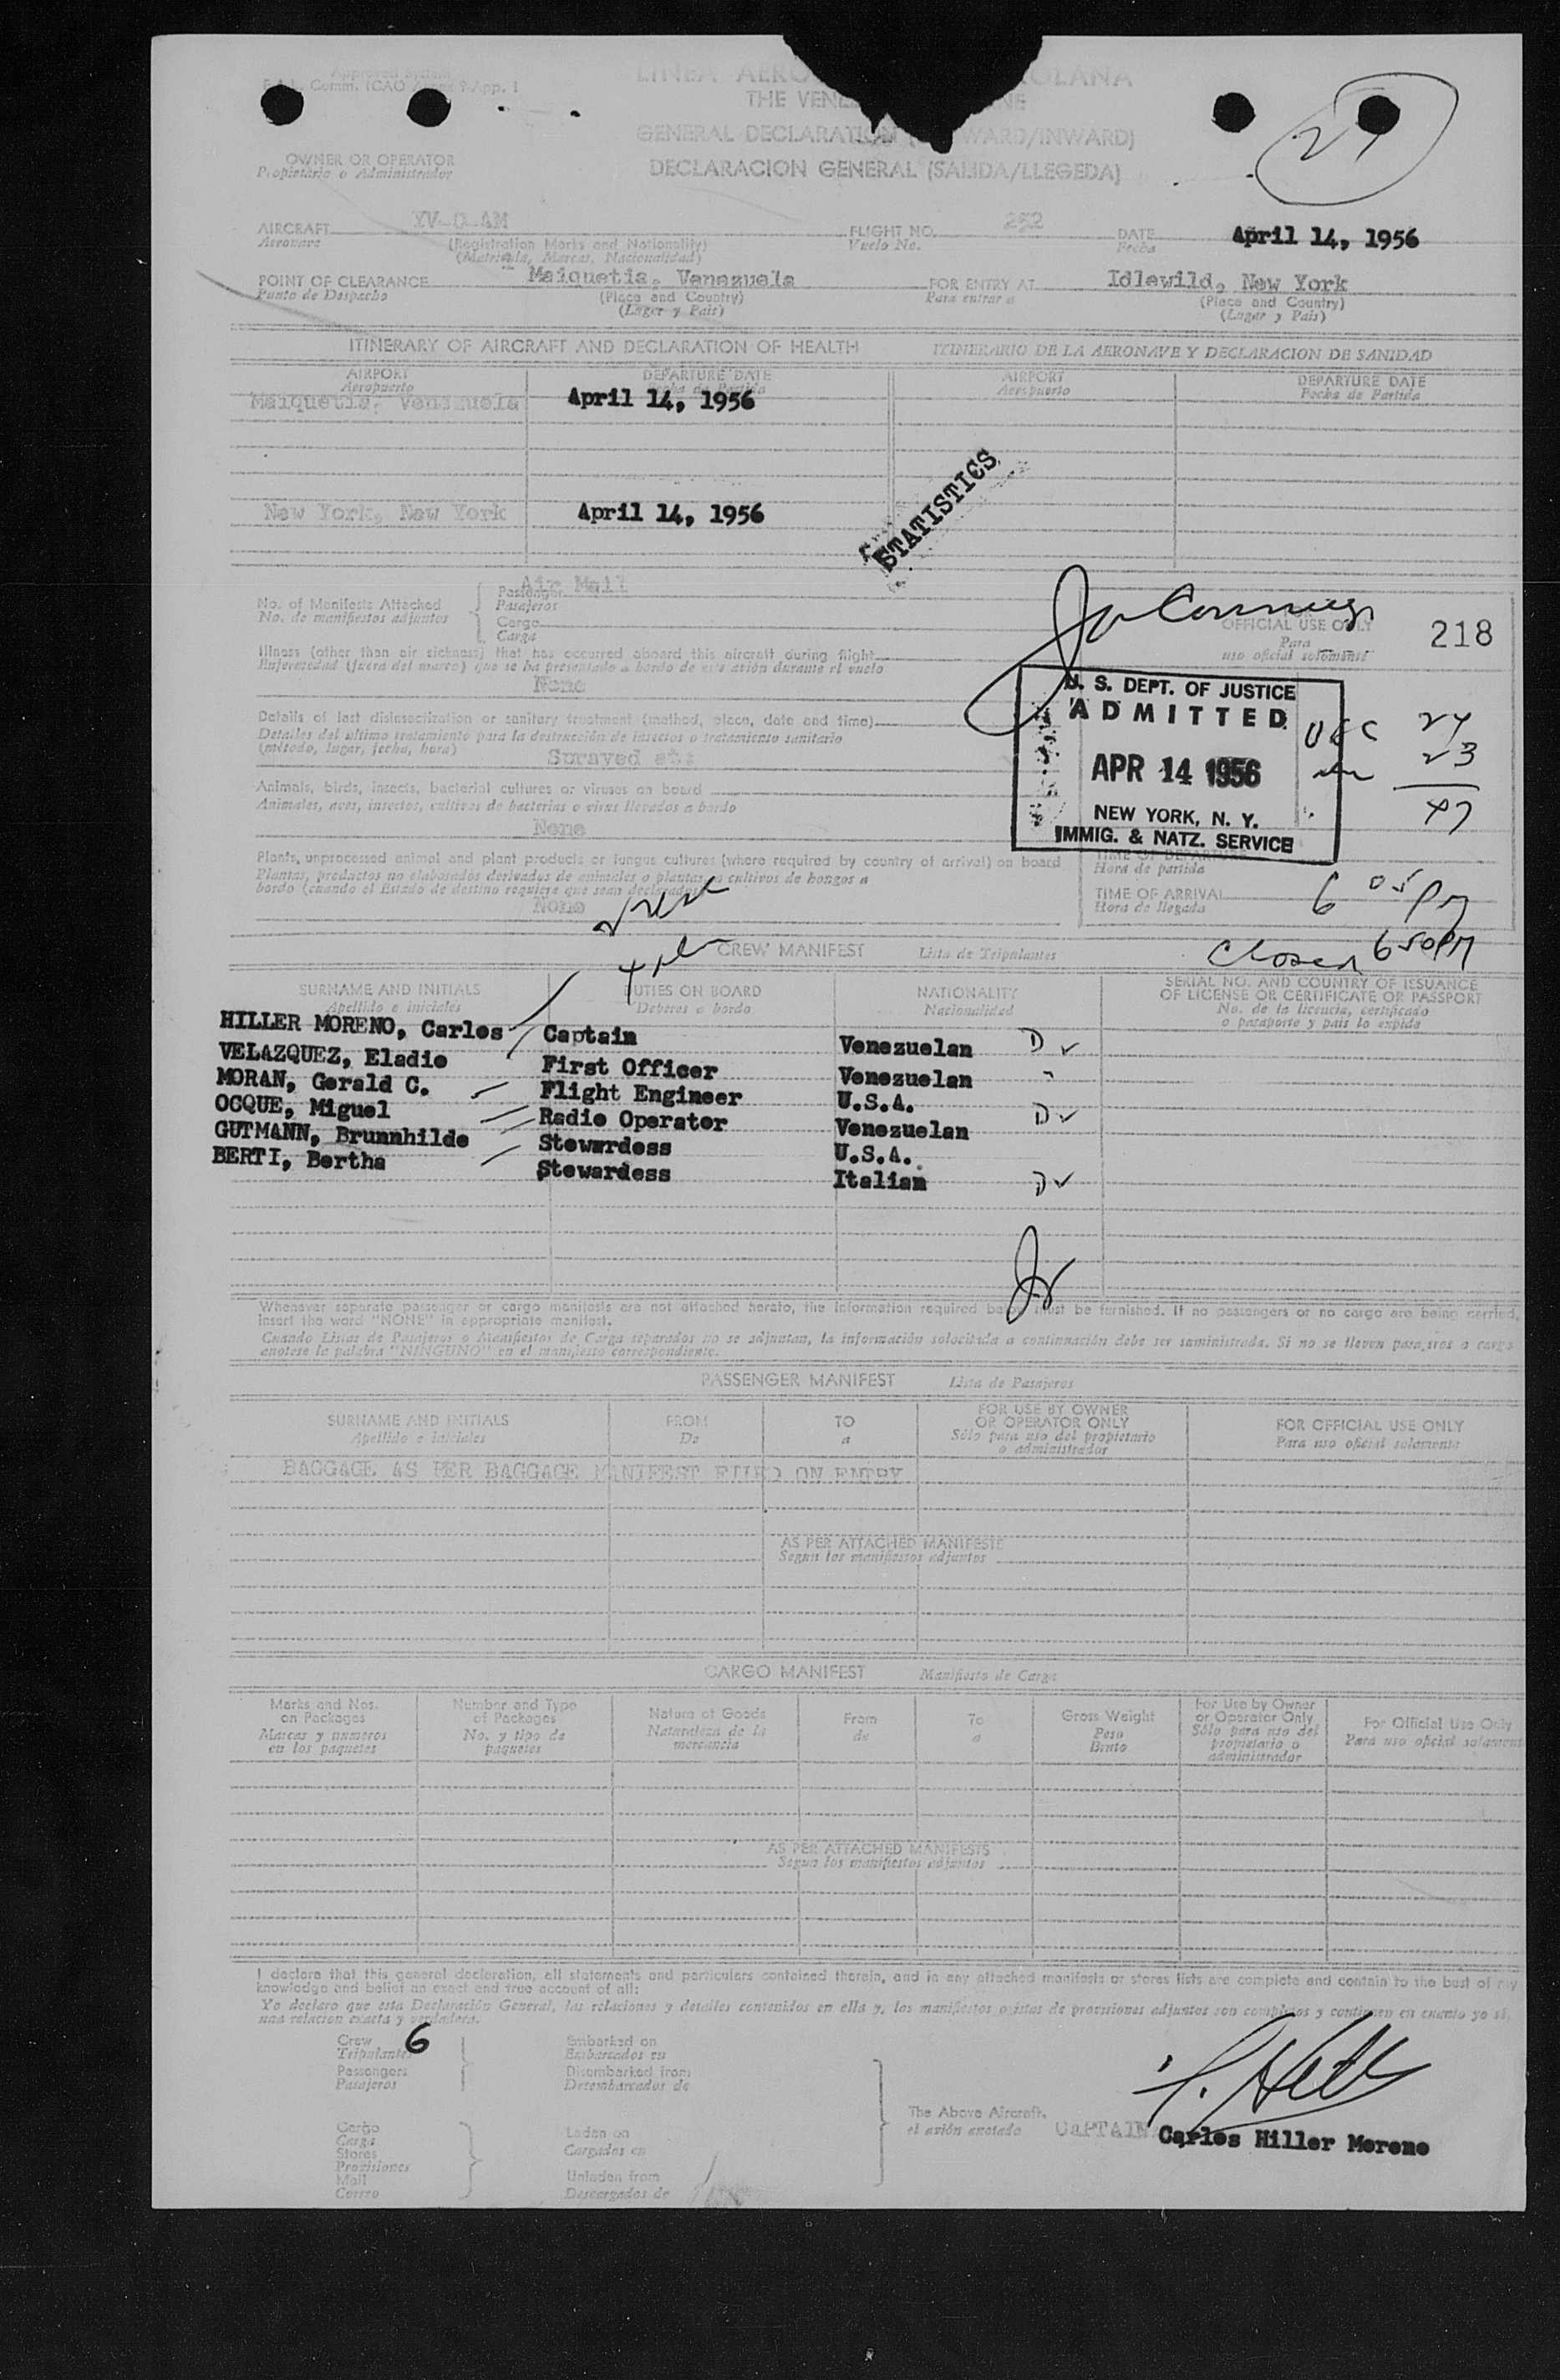 Approved System
Comm. ICAO Annex 9-App. 1
LINEA AERO OLANA
THE VENE NE
GENERAL DECLARATION WARD/INWARD)
DECLARACION GENERAL (SALIDA/LLEGEDA)
27
OWNER OR OPERATOR
Propietario o Administrador
AIRCRAFT YV-C-AM FLIGHT NO. 252 DATE April 14, 1956
Aeronave (Registration Marks and Nationality) Vuelo No. Fecha
(Matricula, Marcas, Nacionalidad)
POINT OF CLEARANCE Maiquetia, Venezuela FOR ENTRY AT Idlewild, New York
Punto de Despacho (Place and Country) Para entrar a (Place and Country)
(Lugar y Pais) (Lugar y Pais)
ITINERARY OF AIRCRAFT AND DECLARATION OF HEALTH ITINERARIO DE LA AERONAVE Y DECLARACION DE SANIDAD
AIRPORT DEPARTURE DATE AIRPORT DEPARTURE DATE
Aeropuerto Fecha de Partida Aeropuerto Fecha de Partida
Maiquetia, Venezuela April 14, 1956
STATISTICS
New York, New York April 14, 1956
Air Mail
No. of Manifests Attached Passenger
No. de manifiestos adjuntos Pasajeros
Cargo
Carga
OFFICIAL USE ONLY 218
Para
uso oficial solamente
Illness (other than air sickness) that has occurred aboard this aircraft during flight
Enfermedad (fuera del mareo) que se ha presentado a bordo de este avión durante el vuelo
None
U. S. DEPT. OF JUSTICE
ADMITTED
APR 14 1956
NEW YORK, N. Y.
IMMIG. & NATZ. SERVICE
USC 24
23
47
Details of last disinsectization or sanitary treatment (method, place, date and time)
Detalles del ultimo tratamiento para la destrucción de insectos o tratamiento sanitario
(método, lugar, fecha, hora)
Sprayed at:
Animals, birds, insects, bacterial cultures or viruses on board
Animales, aves, insectos, cultivos de bacterias o virus llevados a bordo
None
Plants, unprocessed animal and plant products or fungus cultures (where required by country of arrival) on board
Plantas, productos no elaborados derivados de animales o plantas o cultivos de hongos a
bordo (cuando el Estado de destino requiere que sean declarados)
None
TIME OF DEPARTURE
Hora de partida
TIME OF ARRIVAL 6 05 PM
Hora de llegada
Closed 6 50 PM
CREW MANIFEST Lista de Tripulantes
SURNAME AND INITIALS DUTIES ON BOARD NATIONALITY SERIAL NO. AND COUNTRY OF ISSUANCE
OF LICENSE OR CERTIFICATE OR PASSPORT
Apellido e iniciales Deberes a bordo Nacionalidad No. de la licencia, certificado
o pasaporte y pais lo expide
HILLER MORENO, Carlos Captain Venezuelan D ✓
VELAZQUEZ, Eladio First Officer Venezuelan
MORAN, Gerald C. Flight Engineer U.S.A.
OCQUE, Miguel Radio Operator Venezuelan D ✓
GUTMANN, Brunnhilde Stewardess U.S.A.
BERTI, Bertha Stewardess Italian D ✓
Whenever separate passenger or cargo manifests are not attached hereto, the information required below must be furnished. If no passengers or no cargo are being carried,
insert the word "NONE" in appropriate manifest.
Cuando Listas de Pasajeros o Manifiestos de Carga separados no se adjuntan, la información solocitada a continuación debe ser suministrada. Si no se lleven pasajeros o carga
anotese la palabra "NINGUNO" en el manifiesto correspondiente.
PASSENGER MANIFEST Lista de Pasajeros
SURNAME AND INITIALS FROM TO FOR USE BY OWNER
OR OPERATOR ONLY FOR OFFICIAL USE ONLY
Apellido e iniciales De a Sólo para uso del propietario
o administrador Para uso oficial solamente
BAGGAGE AS PER BAGGAGE MANIFEST FILED ON ENTRY
AS PER ATTACHED MANIFESTS
Segun los manifiestos adjuntos
CARGO MANIFEST Manifiesto de Carga
Marks and Nos.
on Packages
Marcas y numeros
en los paquetes
Number and Type
of Packages
No. y tipo de
paquetes
Nature of Goods
Naturaleza de la
mercancia
From
de
To
a
Gross Weight
Peso
Bruto
For Use by Owner
or Operator Only
Sólo para uso del
propietario o
administrador
For Official Use Only
Para uso oficial solamente
AS PER ATTACHED MANIFESTS
Segun los manifiestos adjuntos
I declare that this general declaration, all statements and particulars contained therein, and in any attached manifests or stores lists are complete and contain to the best of my
knowledge and belief an exact and true account of all:
Yo declaro que esta Declaración General, las relaciones y detalles contenidos en ella y, los manifiestos o listas de provisiones adjuntos son completos y contienen en cuanto yo sé,
una relacion exacta y verdadera.
Crew 6
Tripulantes
Passengers
Pasajeros
Embarked on
Embarcados en
Disembarked from
Desembarcados de
Cargo
Carga
Stores
Provisiones
Mail
Correo
Laden on
Cargados en
Unladen from
Descargados de
The Above Aircraft.
el avión anotado
CAPTAIN Carlos Hiller Moreno